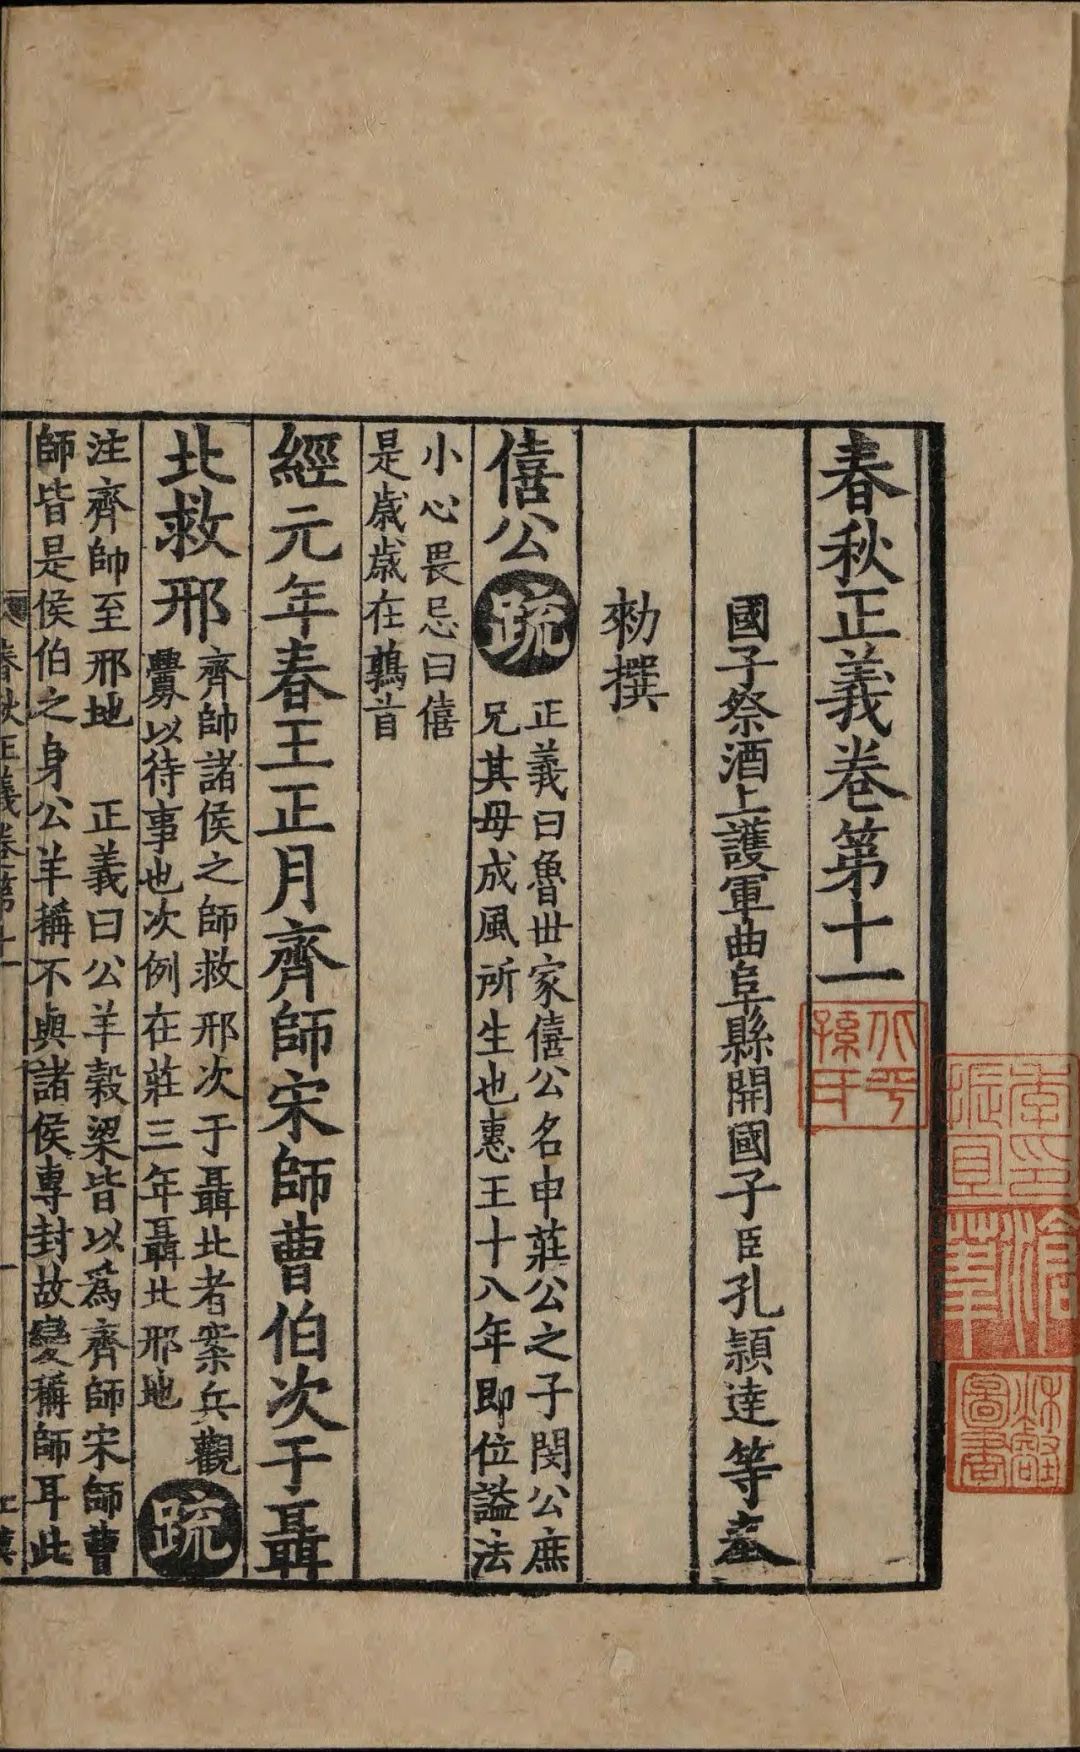 春秋正義卷第十一
國子祭酒上護軍曲阜縣開國子臣孔穎達等奉
勑撰
僖公疏
正義曰魯世家僖公名申莊公之子閔公庶
兄其母成風所生也惠王十八年即位謚法
小心畏忌曰僖
是歲歲在鶉首
經元年春王正月齊師宋師曹伯次于聶
北救邢
齊帥諸侯之師救邢次于聶北者案兵觀
釁以待事也次例在莊三年聶北邢地
疏
注齊帥至邢地 正義曰公羊穀梁皆以爲齊師宋師曹
師皆是侯伯之身公羊稱不與諸侯專封故變稱師耳此
春秋正義卷第十一
一
北平
孫氏
季振宜
滄葦
圖書